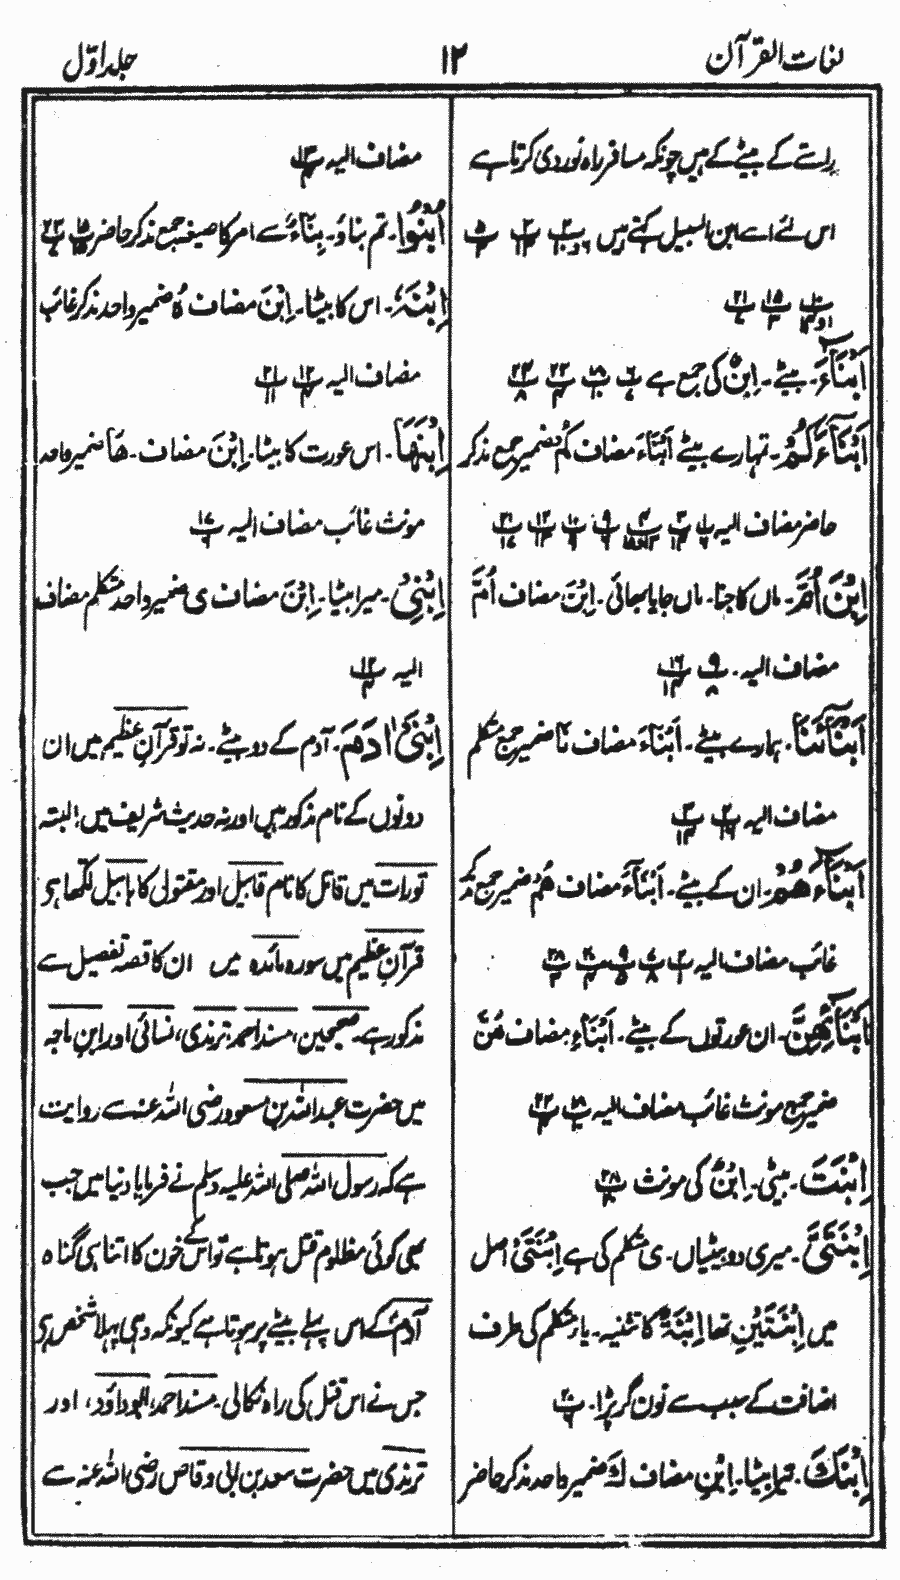 لغات القرآن
۱۲
جلد اوّل
راستے کے بیٹے کے ہیں چونکہ مسافر راہ نوردی کرتا ہے
اس لئے اسے ابن السبیل کہتے ہیں
اَبْنَآءَ۔ بیٹے۔ اِبْنٌ کی جمع ہے
اَبْنَآءَکُمْ۔ تمہارے بیٹے اَبْنَآءَ مضاف کُمْ ضمیر جمع مذکر
حاضر مضاف الیہ
اِبْنَ اُمَّ۔ ماں کا جنا۔ ماں جایا بھائی۔ اِبْنَ مضاف اُمَّ
مضاف الیہ۔
اَبْنَآءَنَا۔ ہمارے بیٹے۔ اَبْنَآءَ مضاف نَا ضمیر جمع متکلم
مضاف الیہ
اَبْنَآءَهُمْ۔ ان کے بیٹے۔ اَبْنَآءَ مضاف هُمْ ضمیر جمع مذکر
غائب مضاف الیہ
اَبْنَآءِهِنَّ۔ ان عورتوں کے بیٹے۔ اَبْنَآءِ مضاف هُنَّ
ضمیر جمع مونث غائب مضاف الیہ
اِبْنَتَ۔ بیٹی۔ اِبْنٌ کی مونث
اِبْنَتَیَّ۔ میری دو بیٹیاں۔ ی متکلم کی ہے اِبْنَتَیَّ اصل
میں اِبْنَتَیْنِ تھا اِبْنَةٌ کا تثنیہ۔ یاء متکلم کی طرف
اضافت کے سبب سے نون گر پڑا۔
اِبْنَکَ۔ تیرا بیٹا۔ اِبْنِ مضاف كَ ضمیر واحد مذکر حاضر
مضاف الیہ
اُبْنُوْا۔ تم بناؤ۔ بِنَآءٌ سے امر کا صیغہ جمع مذکر حاضر
اِبْنَهٗ۔ اس کا بیٹا۔ اِبْنَ مضاف ہٗ ضمیر واحد مذکر غائب
مضاف الیہ
اِبْنَهَا۔ اس عورت کا بیٹا۔ اِبْنَ مضاف۔ هَا ضمیر واحد
مونث غائب مضاف الیہ
اِبْنِیْ۔ میرا بیٹا۔ اِبْنَ مضاف ی ضمیر واحد متکلم مضاف
الیہ
اِبْنَیْ اٰدَمَ۔ آدم کے دو بیٹے۔ نہ تو قرآن عظیم میں ان
دونوں کے نام مذکور ہیں اور نہ حدیث شریف میں؛ البتہ
تورات میں قاتل کا نام قابیل اور مقتول کا ہابیل لکھا ہے
قرآن عظیم میں سورہ مائدہ میں ان کا قصہ تفصیل سے
مذکور ہے۔ صحیحین، مسند احمد، ترمذی، نسائی اور ابن ماجہ
میں حضرت عبد اللہ بن مسعود رضی اللہ عنہ سے روایت
ہے کہ رسول اللہ صلی اللہ علیہ وسلم نے فرمایا دنیا میں جب
بھی کوئی مظلوم قتل ہوتا ہے تو اس کے خون کا اتنا ہی گناہ
آدمؑ کے اس پہلے بیٹے پر ہوتا ہے کیونکہ وہی پہلا شخص ہے
جس نے اس قتل کی راہ نکالی۔ مسند احمد، ابوداؤد، اور
ترمذی میں حضرت سعد بن ابی وقاص رضی اللہ عنہ سے